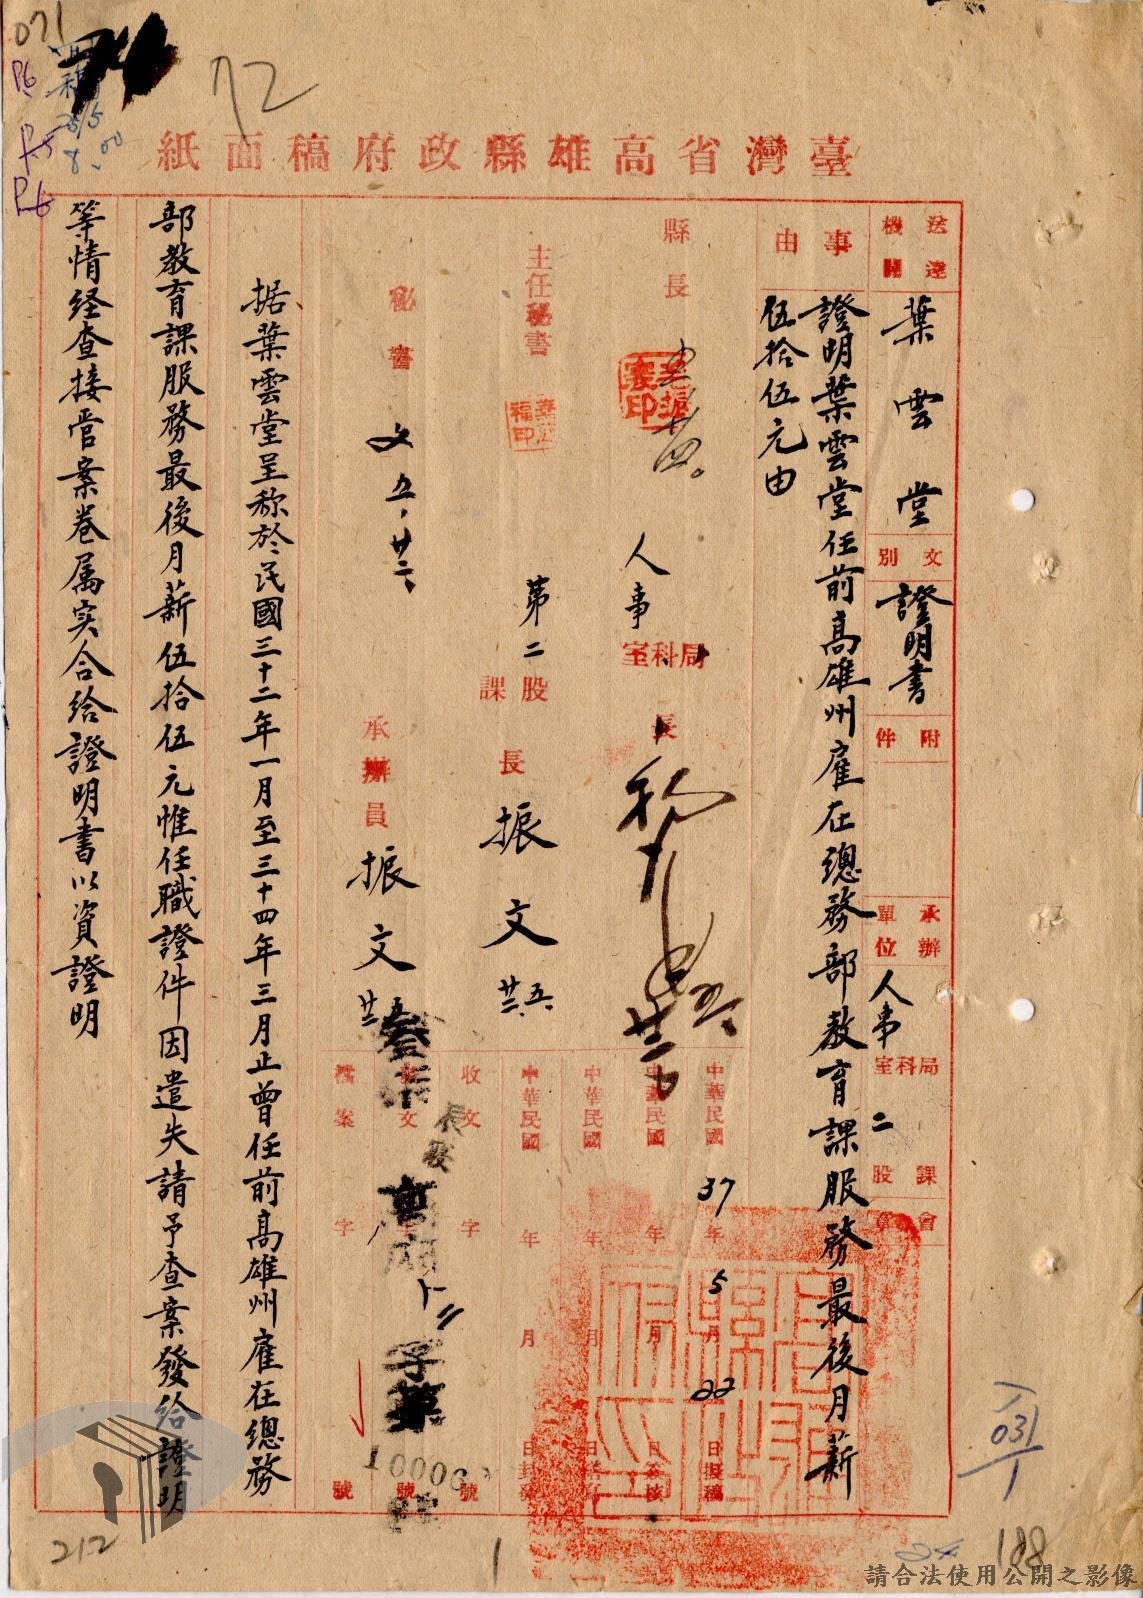 071
72
臺灣省高雄縣政府稿面紙
送達機關
葉雲堂
文別
證明書
附件
承辦單位
人事
局科室
二
課股
會章
事由
證明葉雲堂任前高雄州雇在總務部教育課服務最後月薪
伍拾伍元由
縣長
人事
局科室
長
主任秘書
第二
股課
長
振文
五、廿二、
秘書
文 五、廿二、
承辦員
振文
五、廿二、
中華民國37年5月22日擬稿
中華民國 年 月 日
中華民國 年 月 日
中華民國 年 月 日封發
收文 字 號
文 字 10006 號
檔案 字 號
据葉雲堂呈称於民國三十二年一月至三十四年三月止曾任前高雄州雇在總務
部教育課服務最後月薪伍拾伍元惟任職證件因遺失請予查案發給證明
等情経查接管案卷属实合給證明書以資證明
031
1
212
1
24
188
請合法使用公開之影像